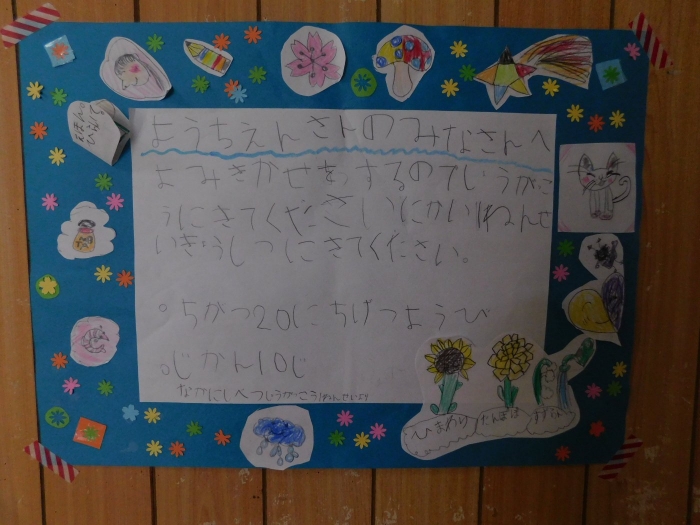 ようちえんさんのみなさんへ
よみきかせをするのでしょうがっこ
うにきてください にかい1ねんせ
いきょうしつにきてください。
。ちがつ20にちげつようび
。じかん10じ
なかにしべつしょうがっこう1ねんせいより
ひまわり
たんぽぽ